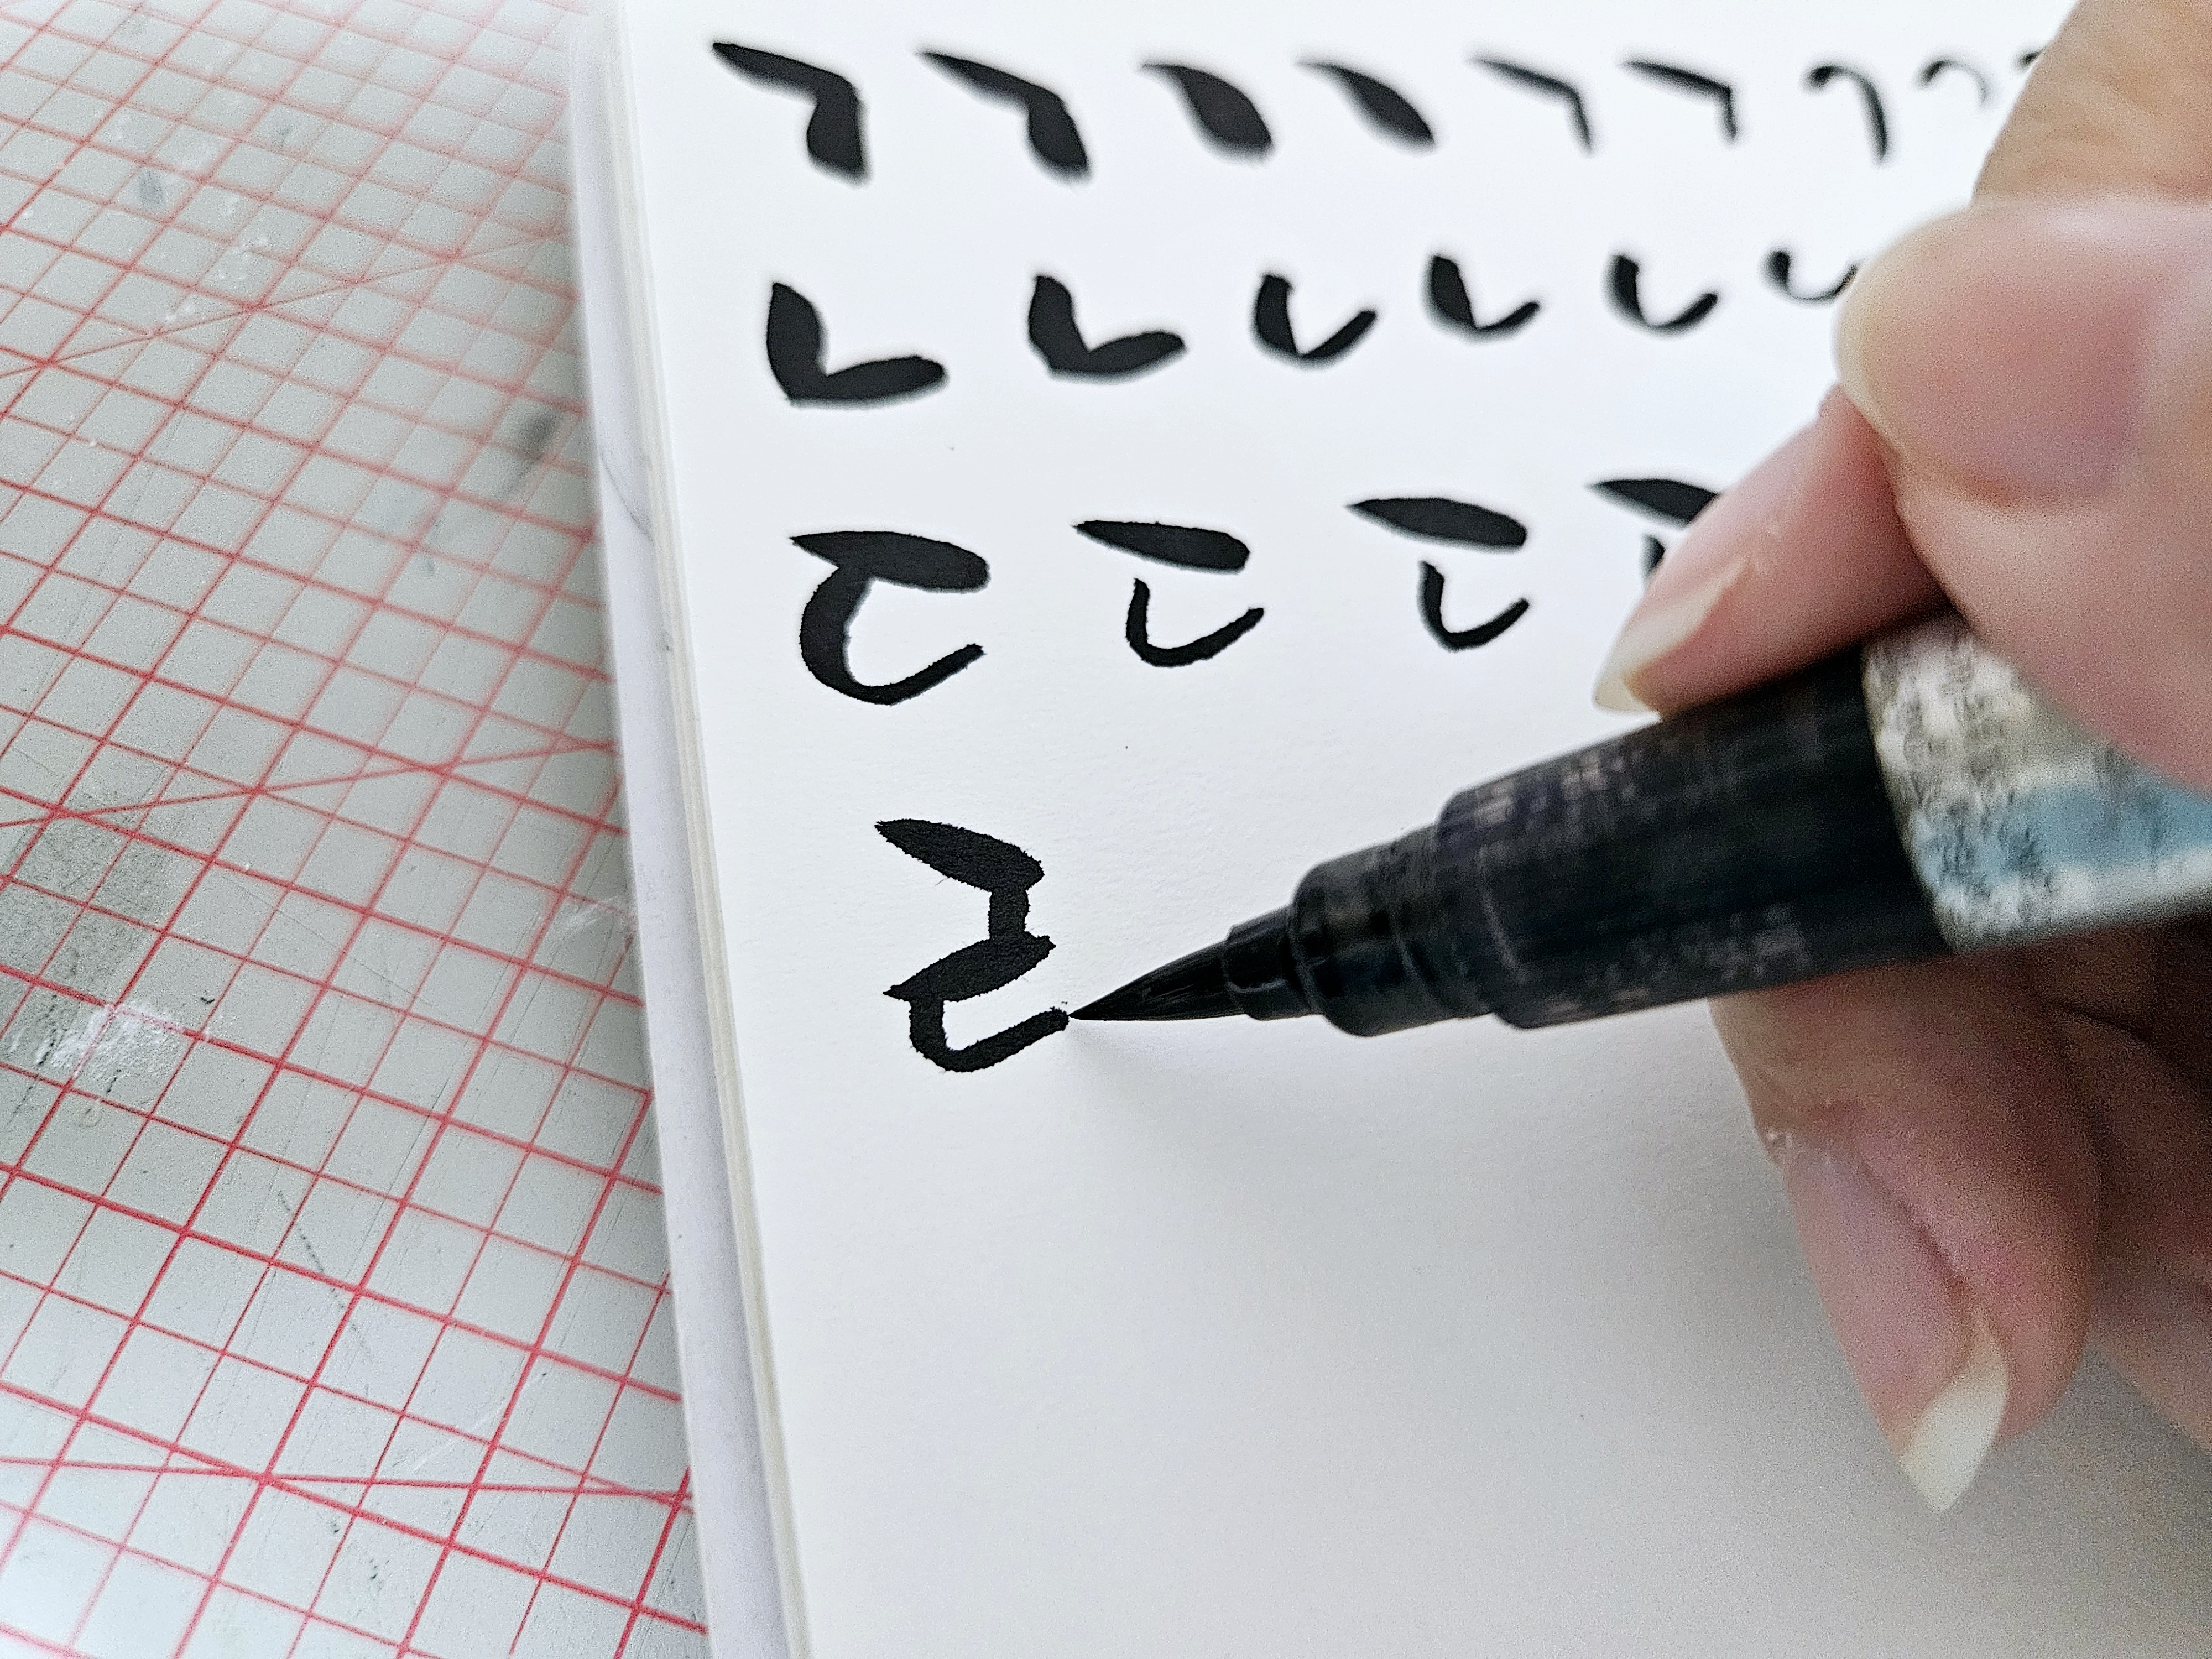 ㄱ ㄱ ㄱ ㄱ ㄱ ㄱ ㄱ ㄱ
ㄴ ㄴ ㄴ ㄴ ㄴ ㄴ
ㄷ ㄷ ㄷ ㄷ
ㄹ